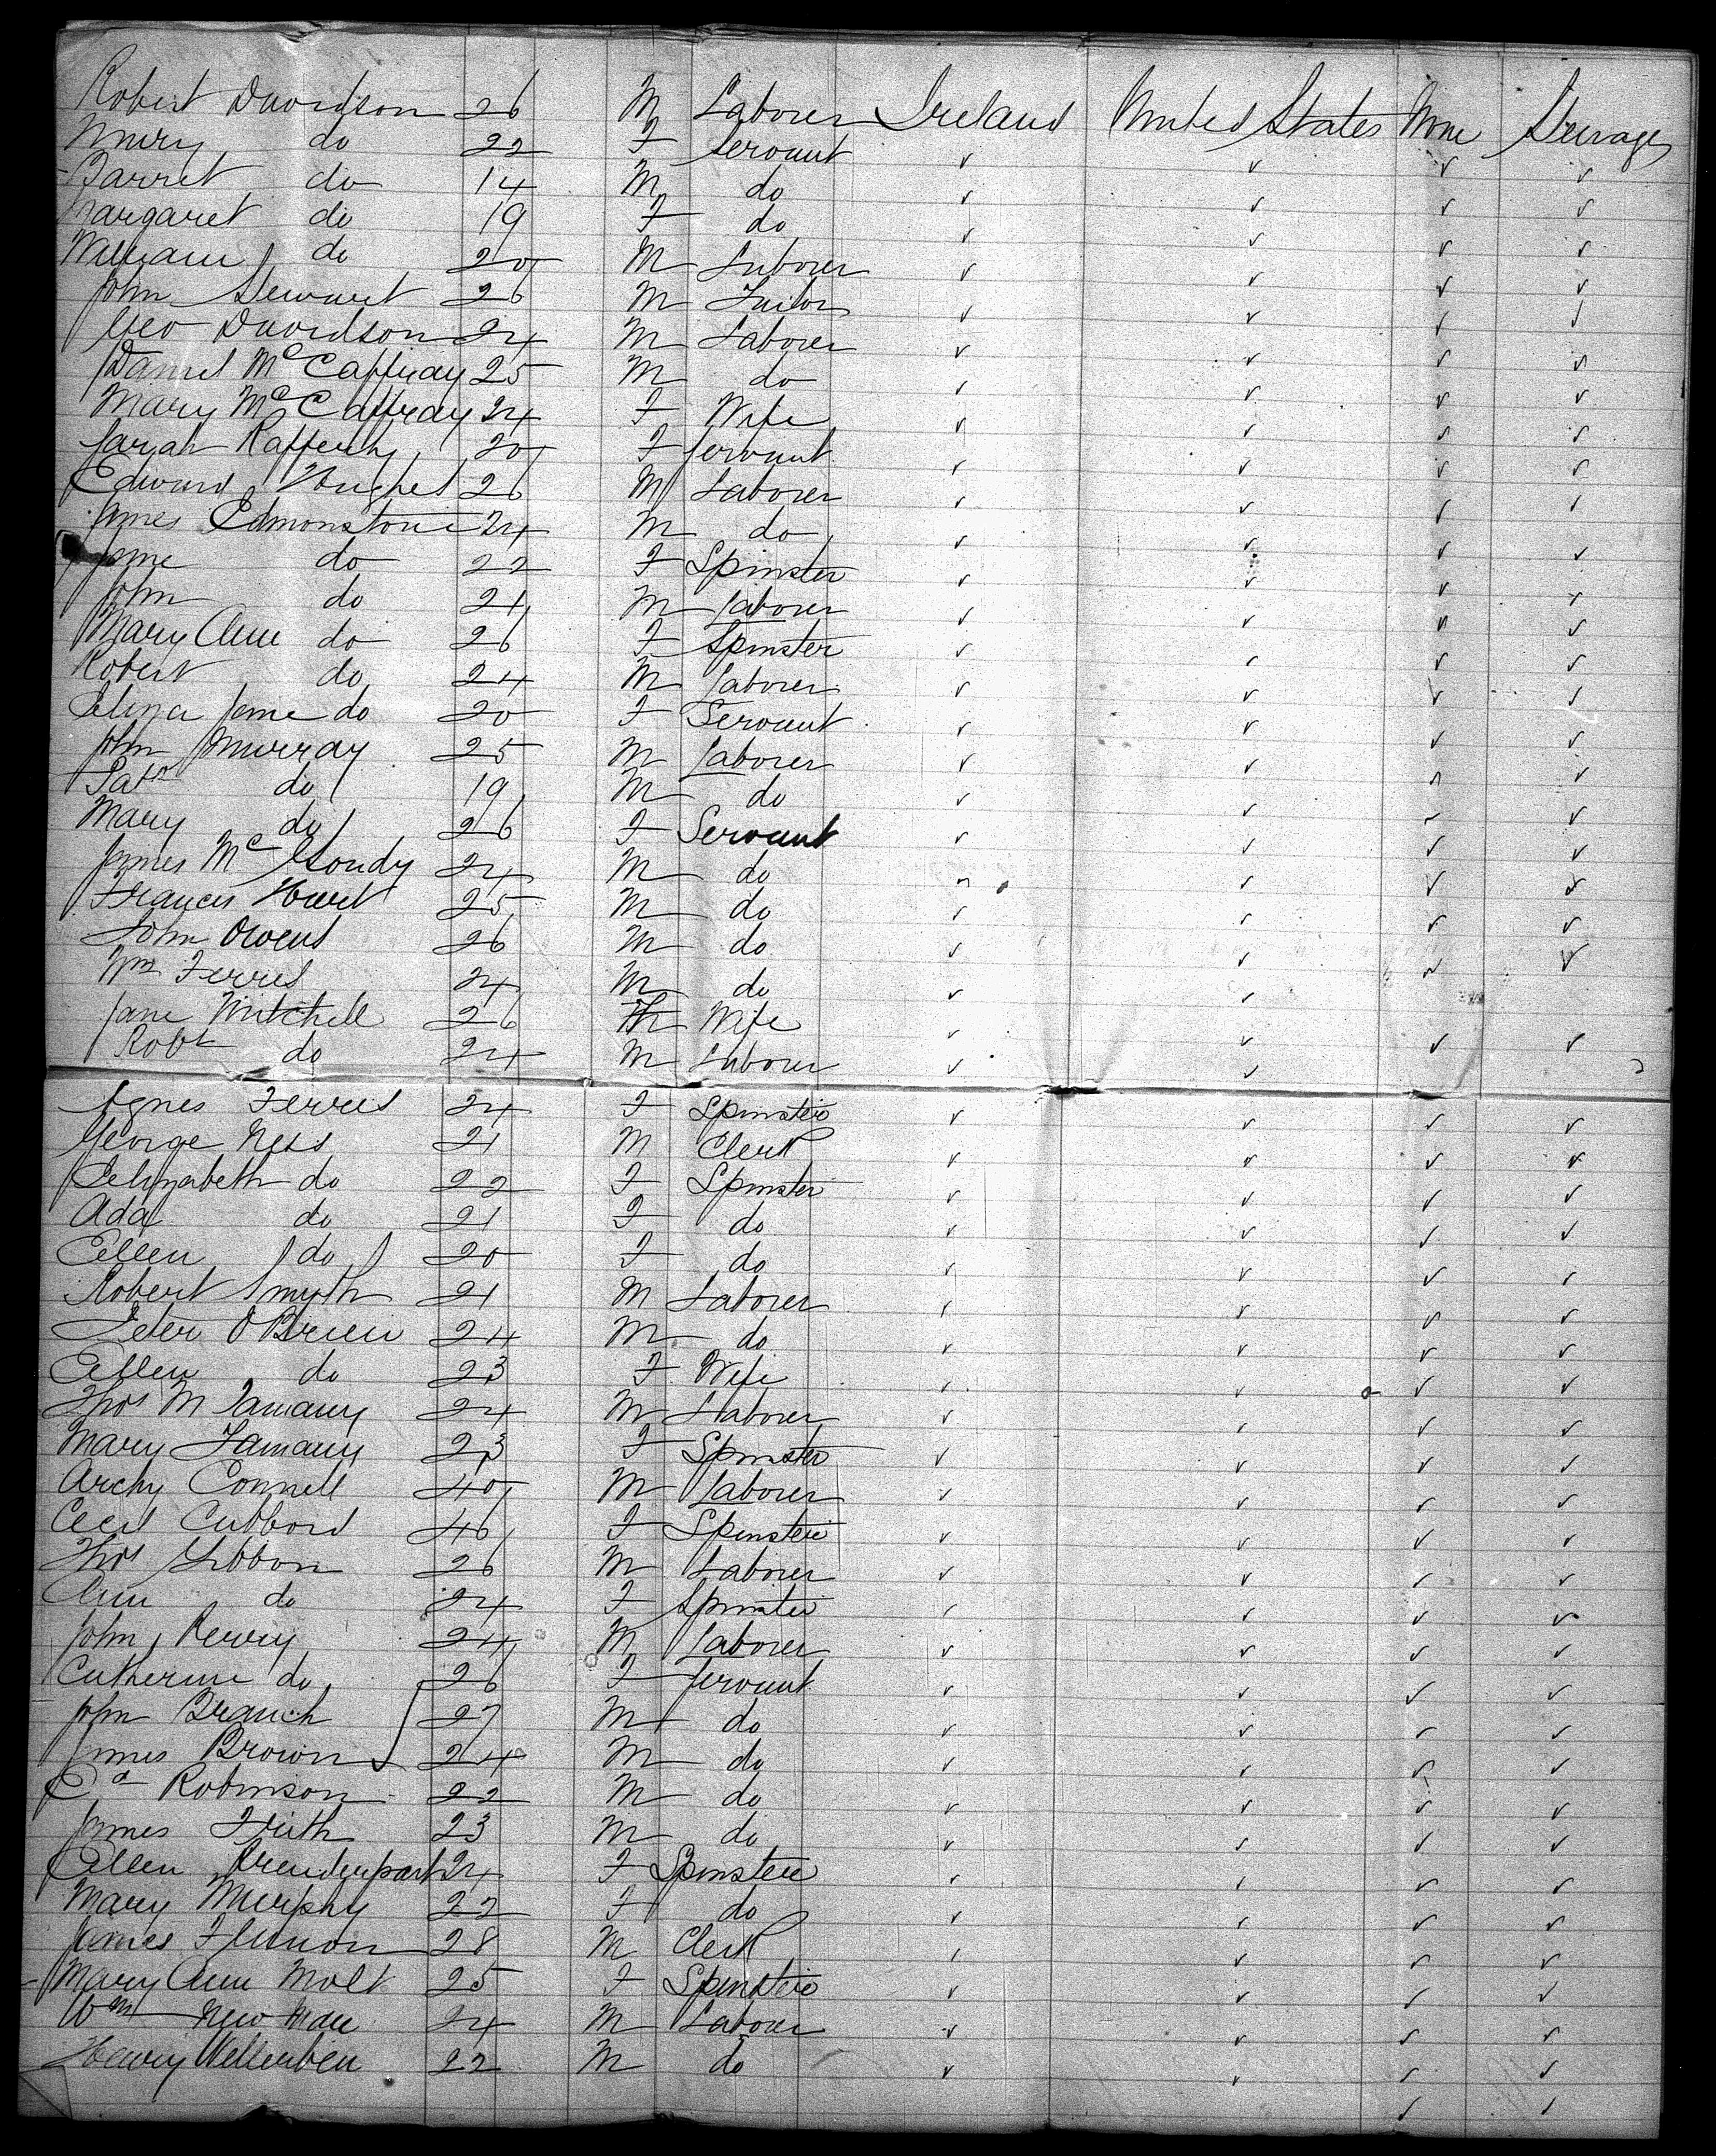 Robert Davidson 26 M Laborer Ireland United States None Steerage
Mary do 22 F Servant ✓ ✓ ✓ ✓
Barret do 14 M do ✓ ✓ ✓ ✓
Margaret do 19 F do ✓ ✓ ✓ ✓
William do 20 M Laborer ✓ ✓ ✓ ✓
John Stewart 26 M Tailor ✓ ✓ ✓ ✓
Geo Davidson 24 M Laborer ✓ ✓ ✓ ✓
Daniel McCaffray 25 M do ✓ ✓ ✓ ✓
Mary McCaffray 24 F Wife ✓ ✓ ✓ ✓
Sarah Rafferty 20 F Servant ✓ ✓ ✓ ✓
Edward 26 M Laborer ✓ ✓ ✓ ✓
James Edmonstone 24 M do ✓ ✓ ✓ ✓
Jane do 22 F Spinster ✓ ✓ ✓ ✓
John do 21 M Laborer ✓ ✓ ✓ ✓
Mary Ann do 26 F Spinster ✓ ✓ ✓ ✓
Robert do 24 M Laborer ✓ ✓ ✓ ✓
Eliza Jane do 20 F Servant ✓ ✓ ✓ ✓
John Murray 25 M Laborer ✓ ✓ ✓ ✓
Patk do 19 M do ✓ ✓ ✓ ✓
Mary do 26 F Servant ✓ ✓ ✓ ✓
James McGoudy 24 M do ✓ ✓ ✓ ✓
Francis 25 M do ✓ ✓ ✓ ✓
John Owens 26 M do ✓ ✓ ✓ ✓
Wm Ferris 24 M do ✓ ✓
Jane Mitchell 26 F Wife ✓ ✓ ✓ ✓
Robt do 24 M Laborer ✓ ✓
Agnes Ferris 24 F Spinster ✓ ✓ ✓ ✓
George Ness 21 M Clerk ✓ ✓ ✓ ✓
Elizabeth do 22 F Spinster ✓ ✓ ✓ ✓
Ada do 21 F do ✓ ✓ ✓ ✓
Ellen do 20 F do ✓ ✓ ✓ ✓
Robert Smyth 21 M Laborer ✓ ✓ ✓ ✓
Peter O'Brien 24 M do ✓ ✓ ✓ ✓
Ellen do 23 F Wife ✓ ✓ ✓ ✓
Thos M Tamany 24 M Laborer ✓ ✓ ✓ ✓
Mary Tamany 23 F Spinster ✓ ✓ ✓ ✓
Archy Connell 40 M Laborer ✓ ✓ ✓ ✓
Cecil Cubbord 46 F Spinster ✓ ✓ ✓ ✓
Thos Gibbon 26 M Laborer ✓ ✓ ✓ ✓
Ann do 24 F Spinster ✓ ✓ ✓ ✓
John 24 M Laborer ✓ ✓ ✓ ✓
Catherine do 26 F Servant ✓ ✓ ✓ ✓
John Branch 27 M do ✓ ✓ ✓ ✓
James Brown 24 M do ✓ ✓ ✓ ✓
Robinson 22 M do ✓ ✓ ✓ ✓
James Frith 23 M do ✓ ✓ ✓ ✓
Ellen 24 F Spinster ✓ ✓ ✓ ✓
Mary Murphy 22 F do ✓ ✓ ✓ ✓
James 28 M Clerk ✓ ✓ ✓ ✓
Mary Ann Molt 25 F Spinster ✓ ✓ ✓ ✓
Wm Newman 24 M Laborer ✓ ✓ ✓ ✓
Henry 22 M do ✓ ✓ ✓ ✓